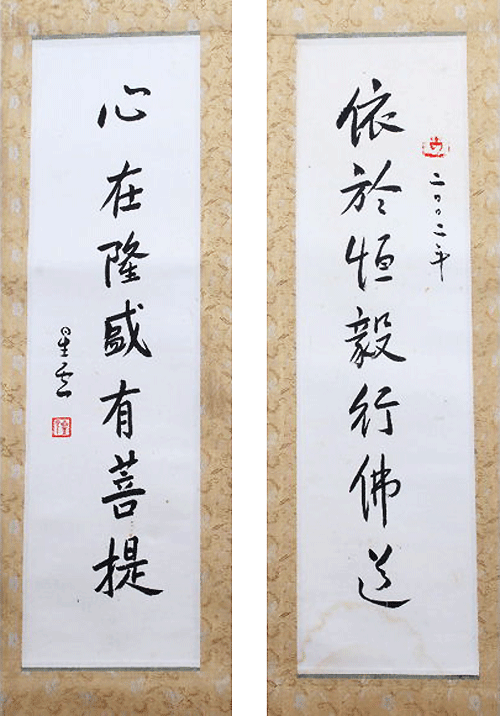 依於恒毅行佛道
二〇〇二年
心在隆盛有菩提
星雲